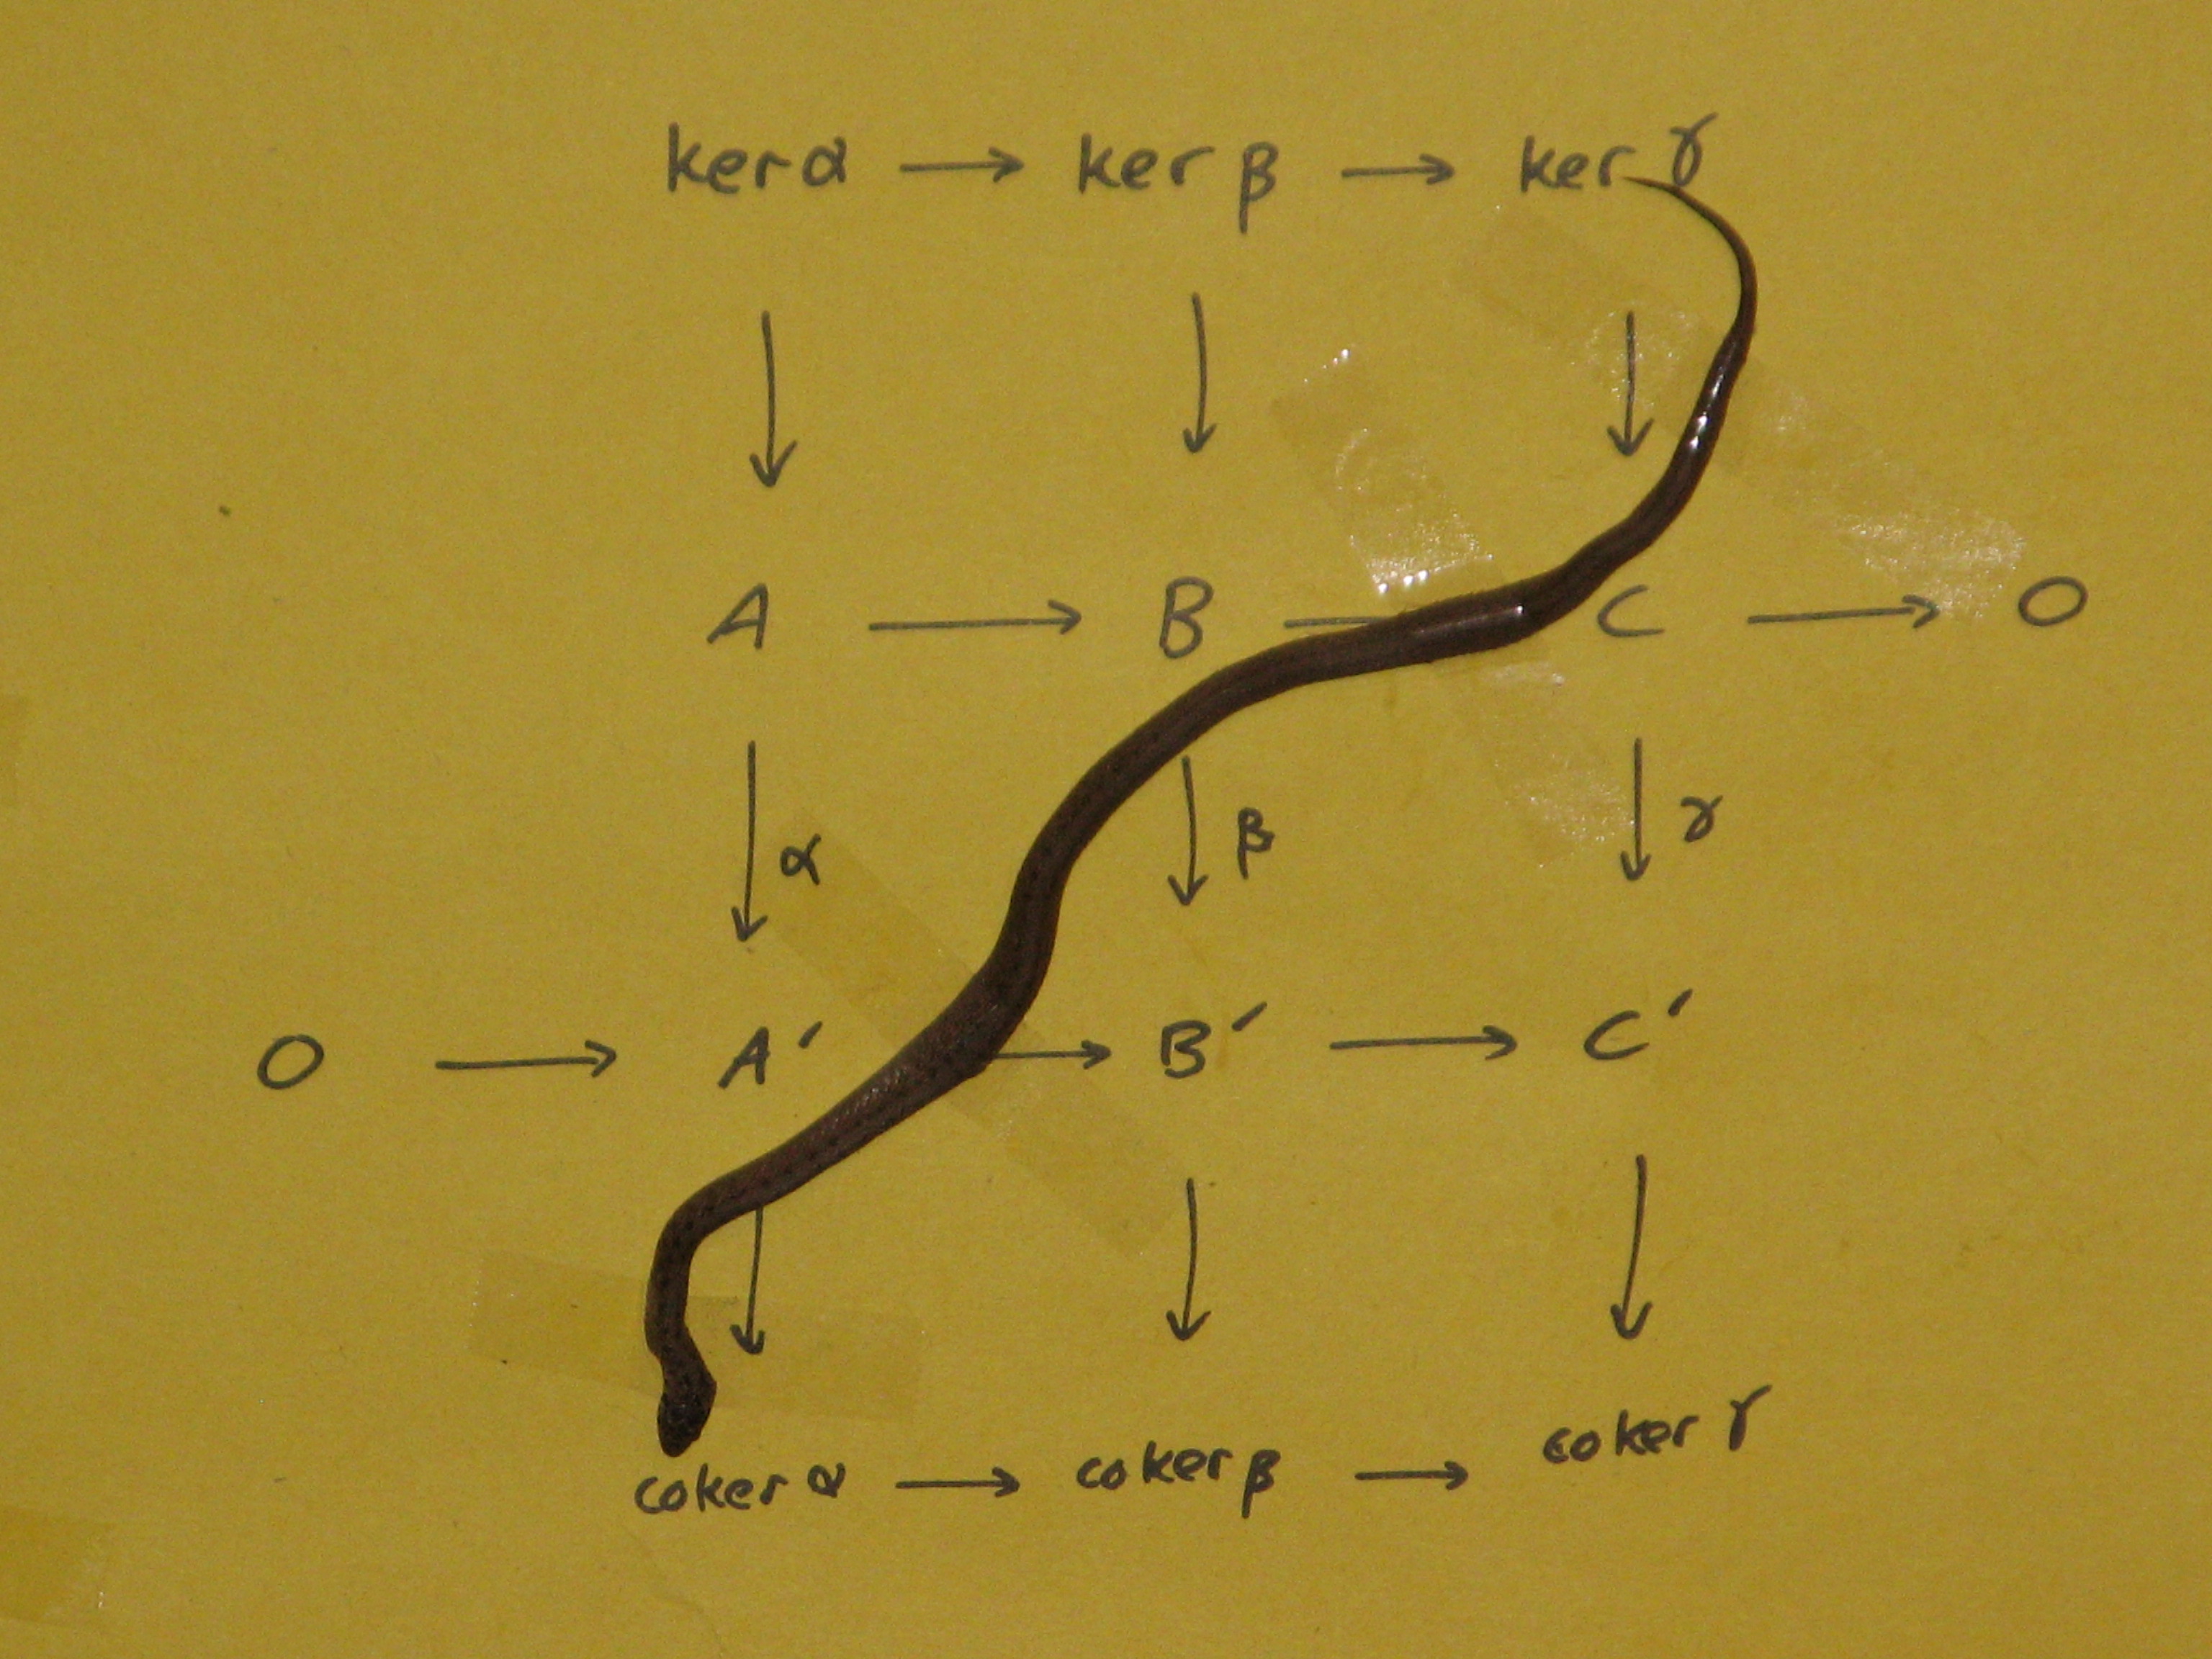 ker α → ker β → ker γ
↓ ↓ ↓
A → B — C → 0
↓ α ↓ β ↓ γ
0 → A′ → B′ → C′
↓ ↓ ↓
coker α → coker β → coker γ